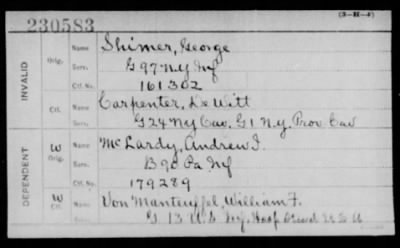 230583
(3-H-4)
INVALID
Orig.
Name Shimer, George
Serv. G 97 N.Y. Inf
Ctf. No. 161302
Ctf.
Name Carpenter, De Witt
Serv. G 24 Ny Cav. G 1 N.Y. Prov. Cav
DEPENDENT
W
Orig.
Name McLardy, Andrew J.
Serv. B 90 Pa Inf
Ctf. No. 179289
W
Ctf.
Name Von Manteuffel, William F.
Serv. G 13 U.S. Inf, Hosp